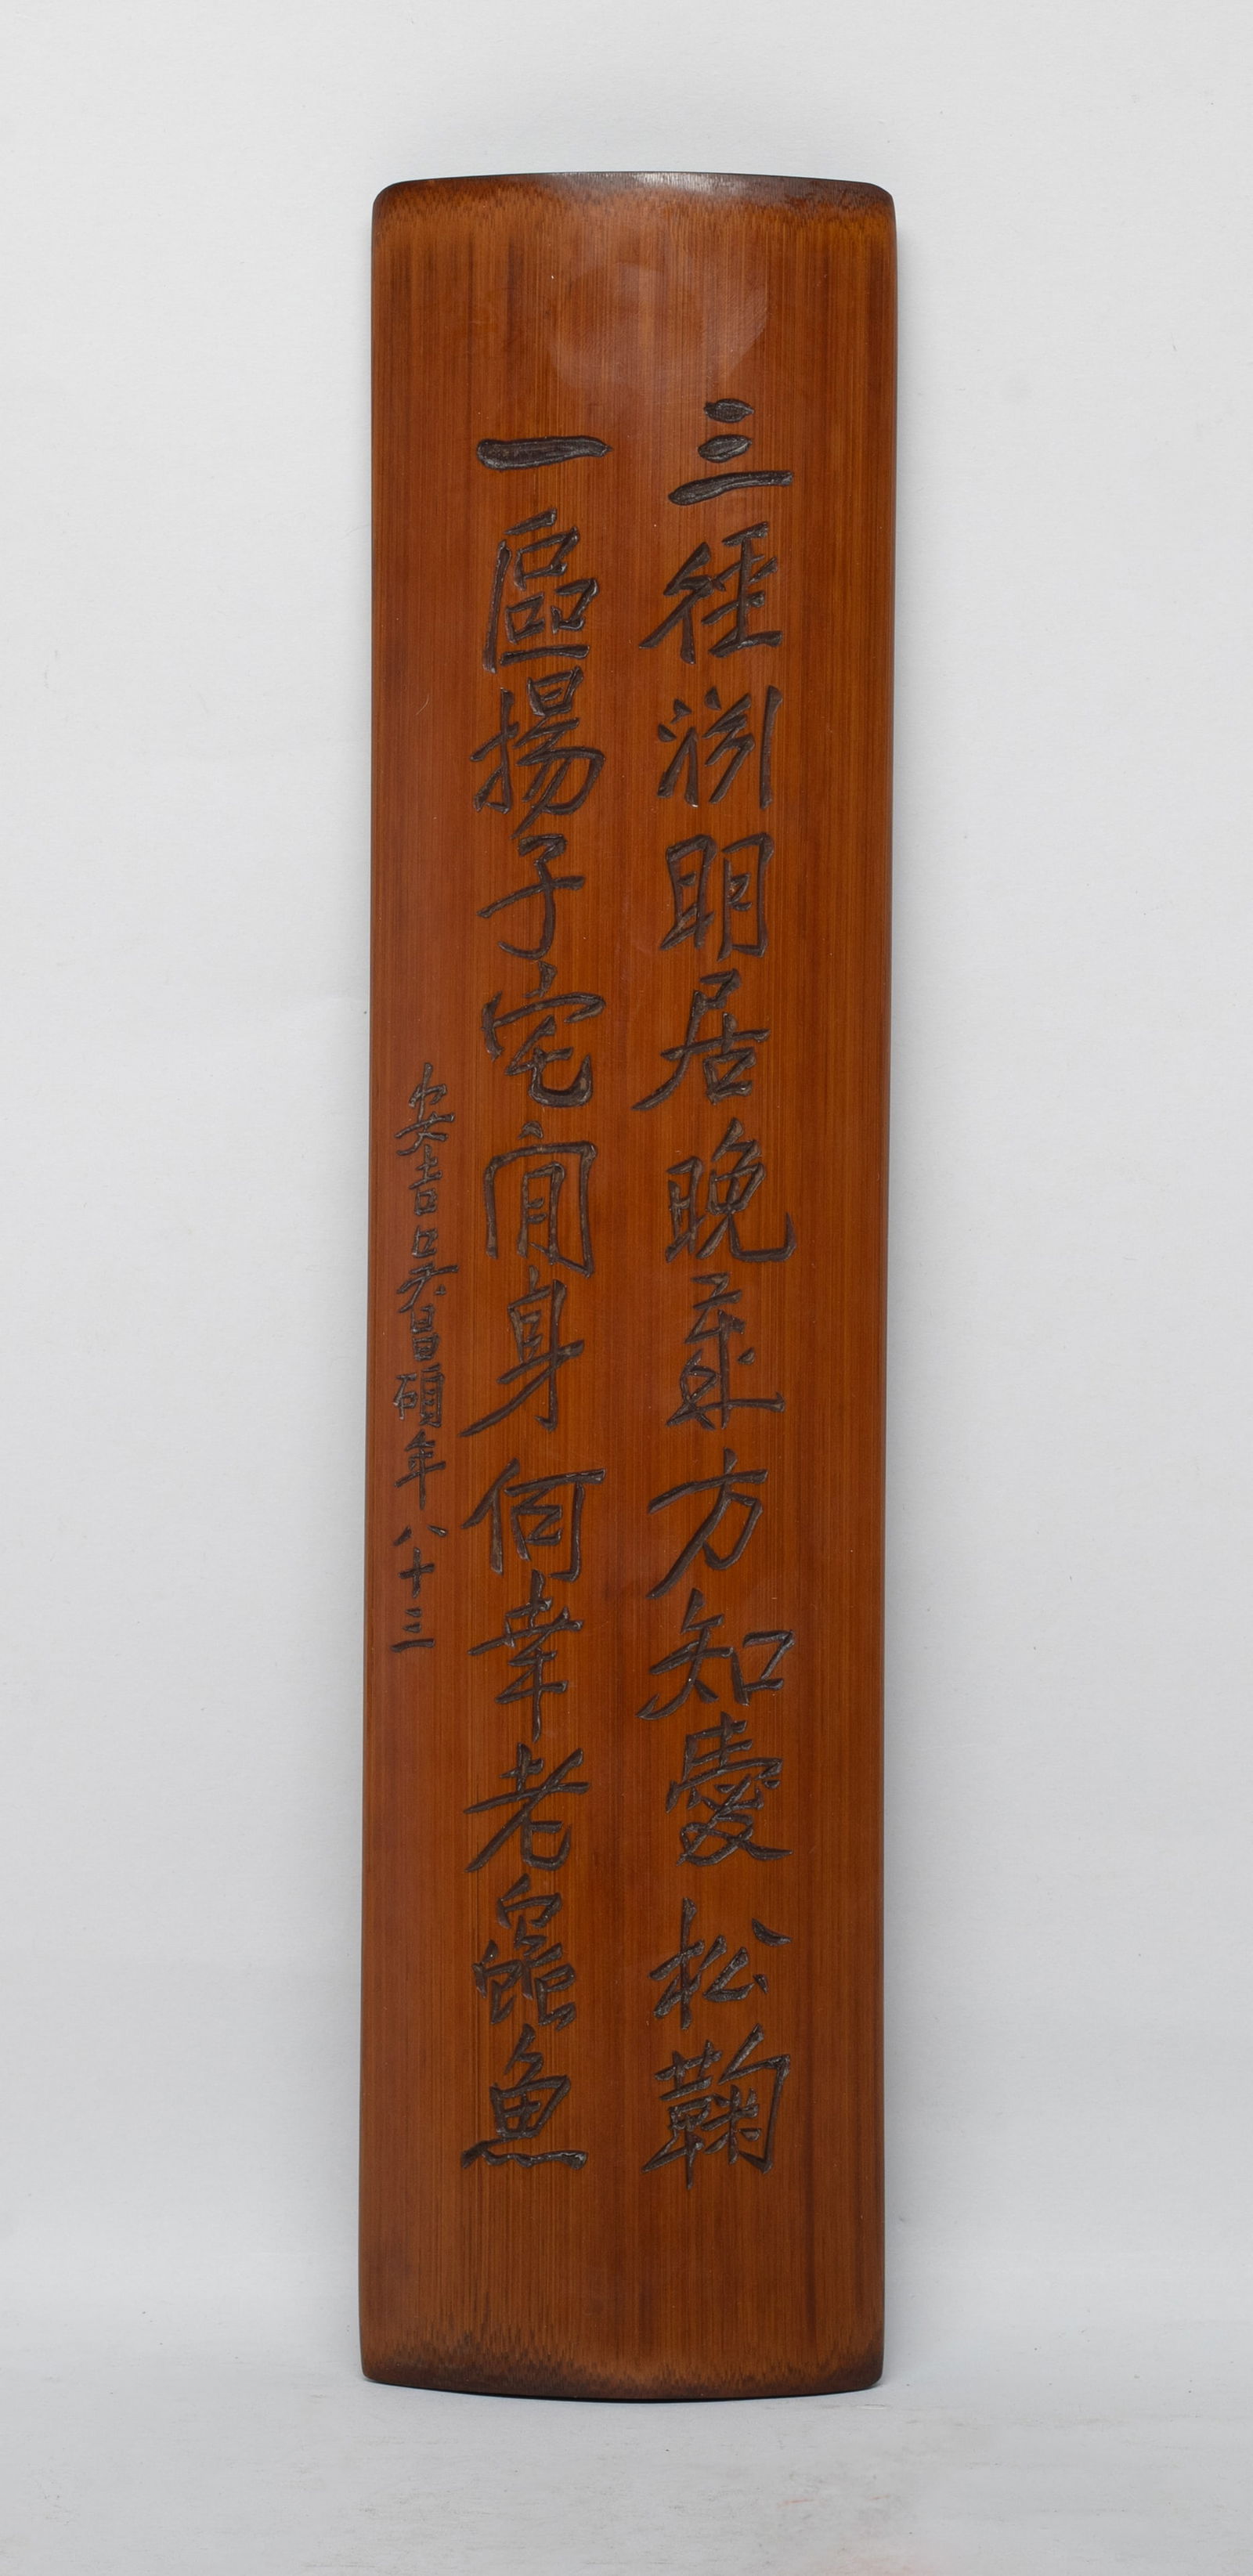 三徑渊眀居晚方知愛松鞠
一區揚子宅閒身何幸老蟲魚
安吉吴昌碩年八十三